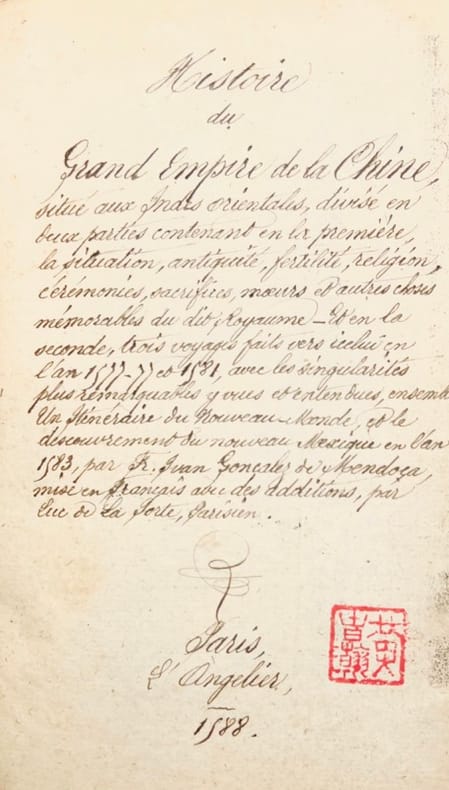 Histoire
du
Grand Empire de la Chine,
situé aux Indes orientales, divisé en
deux parties contenant en la première,
la situation, antiquité, fertilité, religion,
cérémonies, sacrifices, mœurs et autres choses
mémorables du dit Royaume – Et en la
seconde, trois voyages faits vers icelui en
l'an 1577-79 et 1581, avec les singularités
plus remarquables y vues et entendues, ensemb
Un Itinéraire du Nouveau-Monde, et le
descouvrement du nouveau Mexique en l'an
1583, par Fr. Ivan Gonçalez de Mendoça,
mise en français avec des additions, par
Luc de La Porte, Parisien.
Paris,
L'Angelier,
1588.